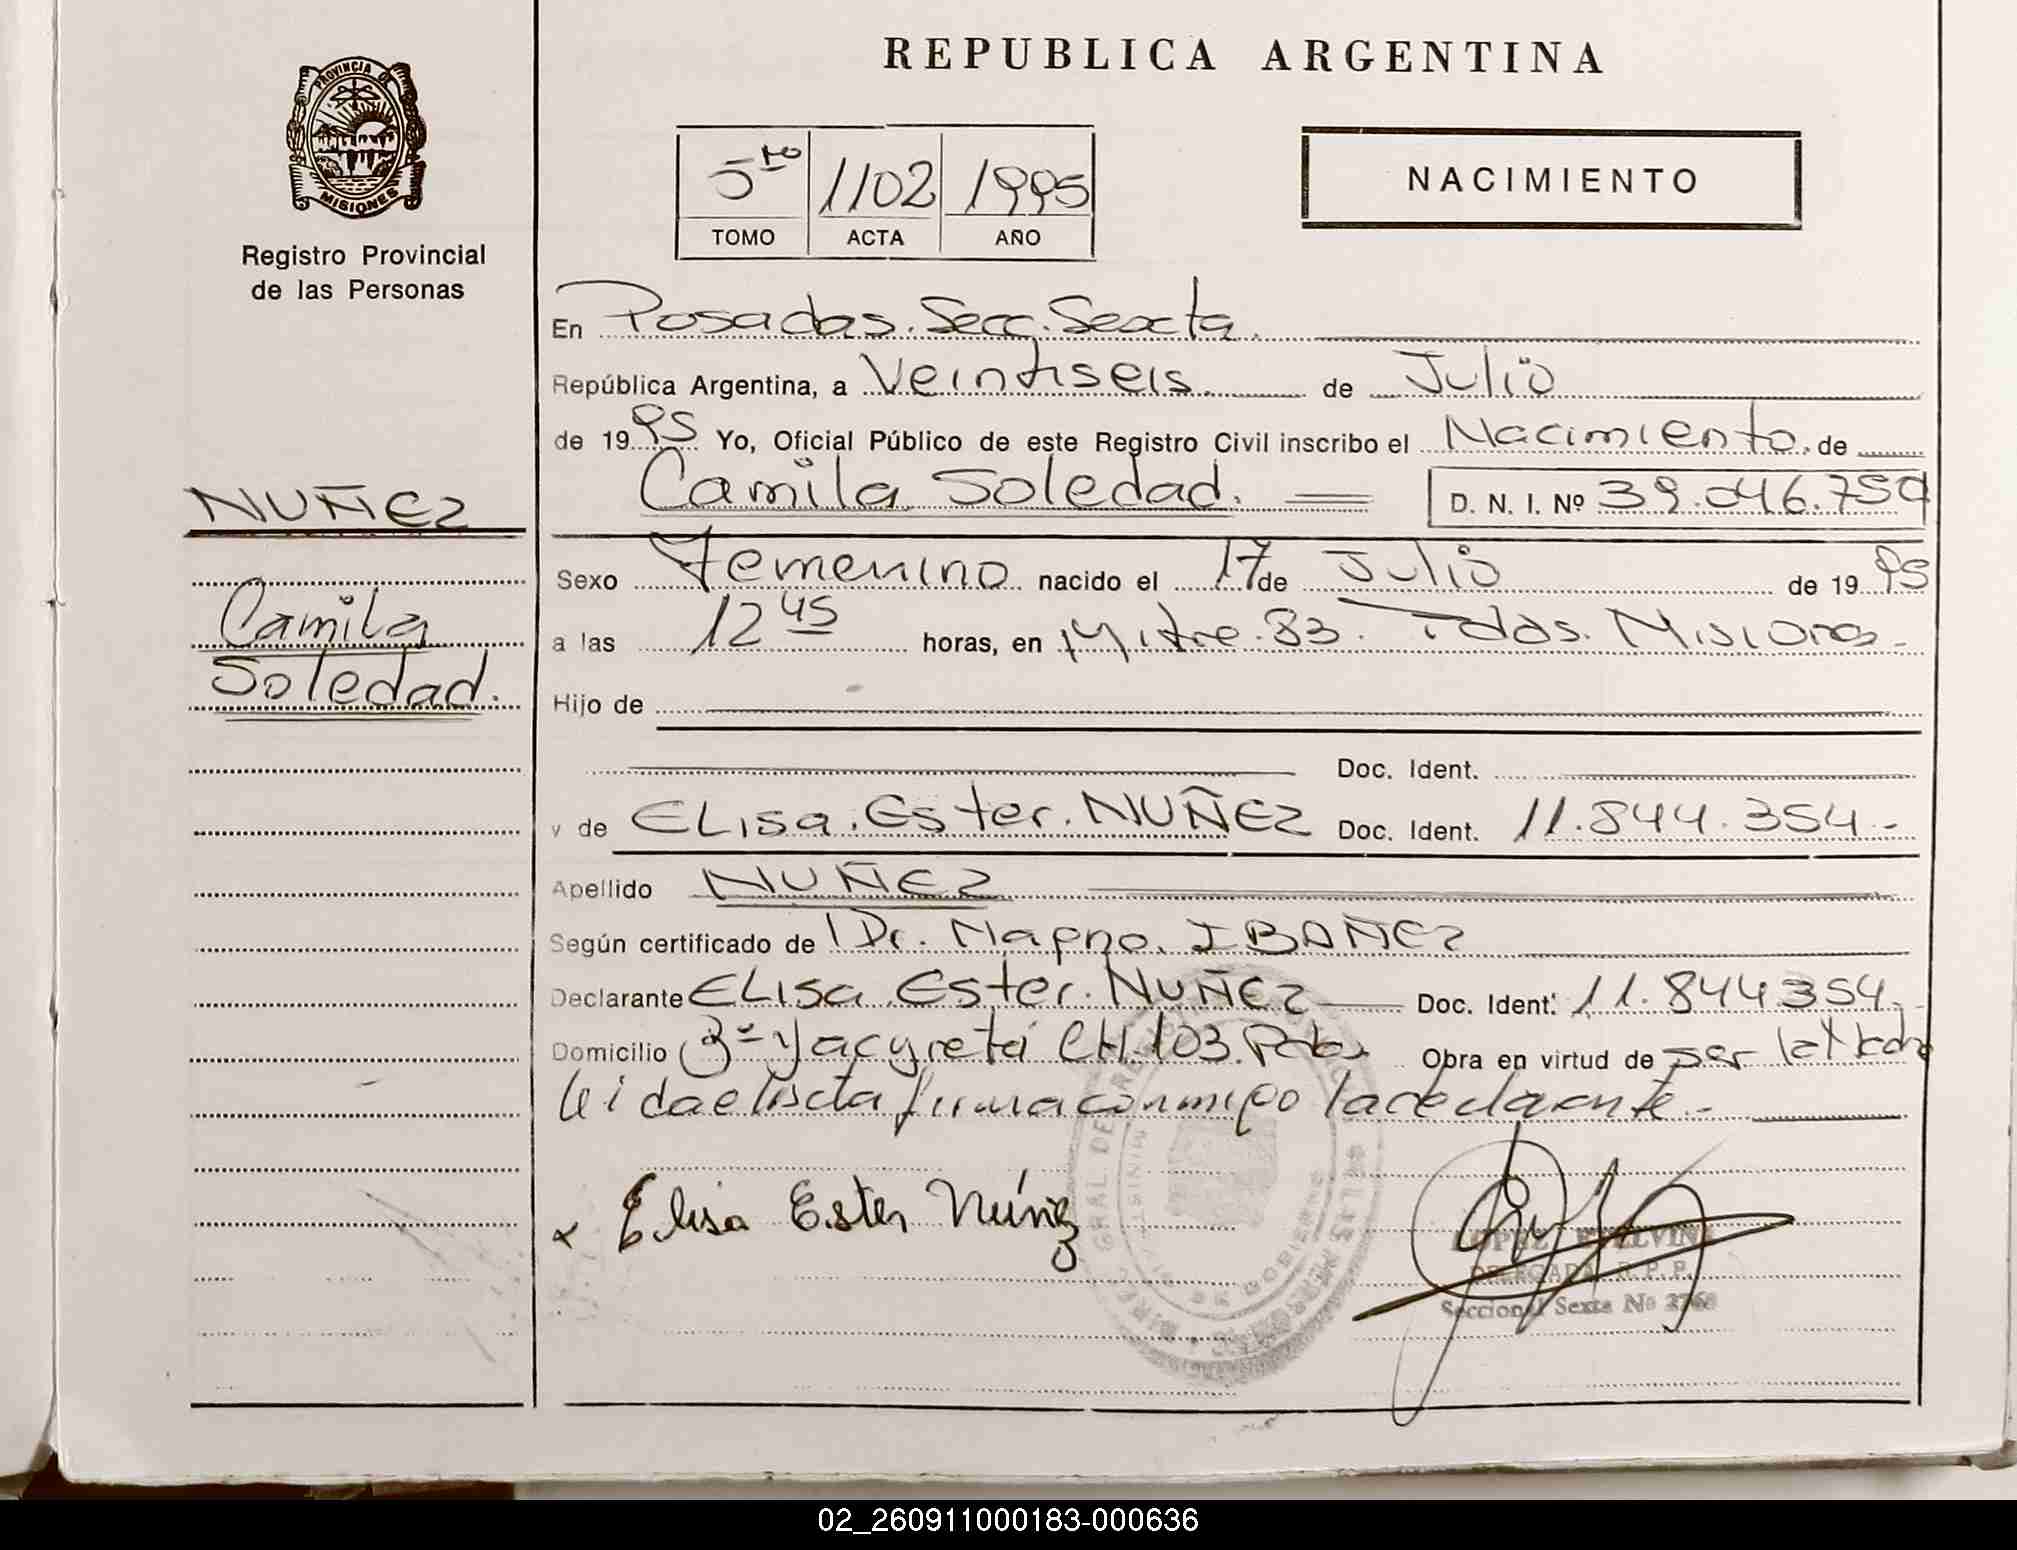 REPUBLICA ARGENTINA
PROVINCIA DE
MISIONES
Registro Provincial
de las Personas
5to 1102 1995
TOMO ACTA AÑO
NACIMIENTO
En Posadas. Secc. Sexta.
República Argentina, a Veintiseis. de Julio
de 1995 Yo, Oficial Público de este Registro Civil inscribo el Nacimiento. de
Camila Soledad. D. N. I. Nº 39.046.759
NUÑEZ
Camila
Soledad.
Sexo Femenino nacido el 17 de Julio de 1995
a las 12 45 horas, en Mitre. 83. Pdas. Misiones.
Hijo de
Doc. Ident.
y de ELisa. Ester. NUÑEZ Doc. Ident. 11.844.354.-
Apellido NUÑEZ
Según certificado de Dr. Magno. IBAÑEZ
Declarante ELisa Ester. NUÑEZ Doc. Ident: 11.844354.
Domicilio Yacyretá CH. 103. Obra en virtud de ser la Madre
leida el acta firma conmigo la declarante.-
Elisa Ester Núñez
LOPEZ ETELVINA
DELEGADA R. P. P.
Seccional Sexta No
02_260911000183-000636